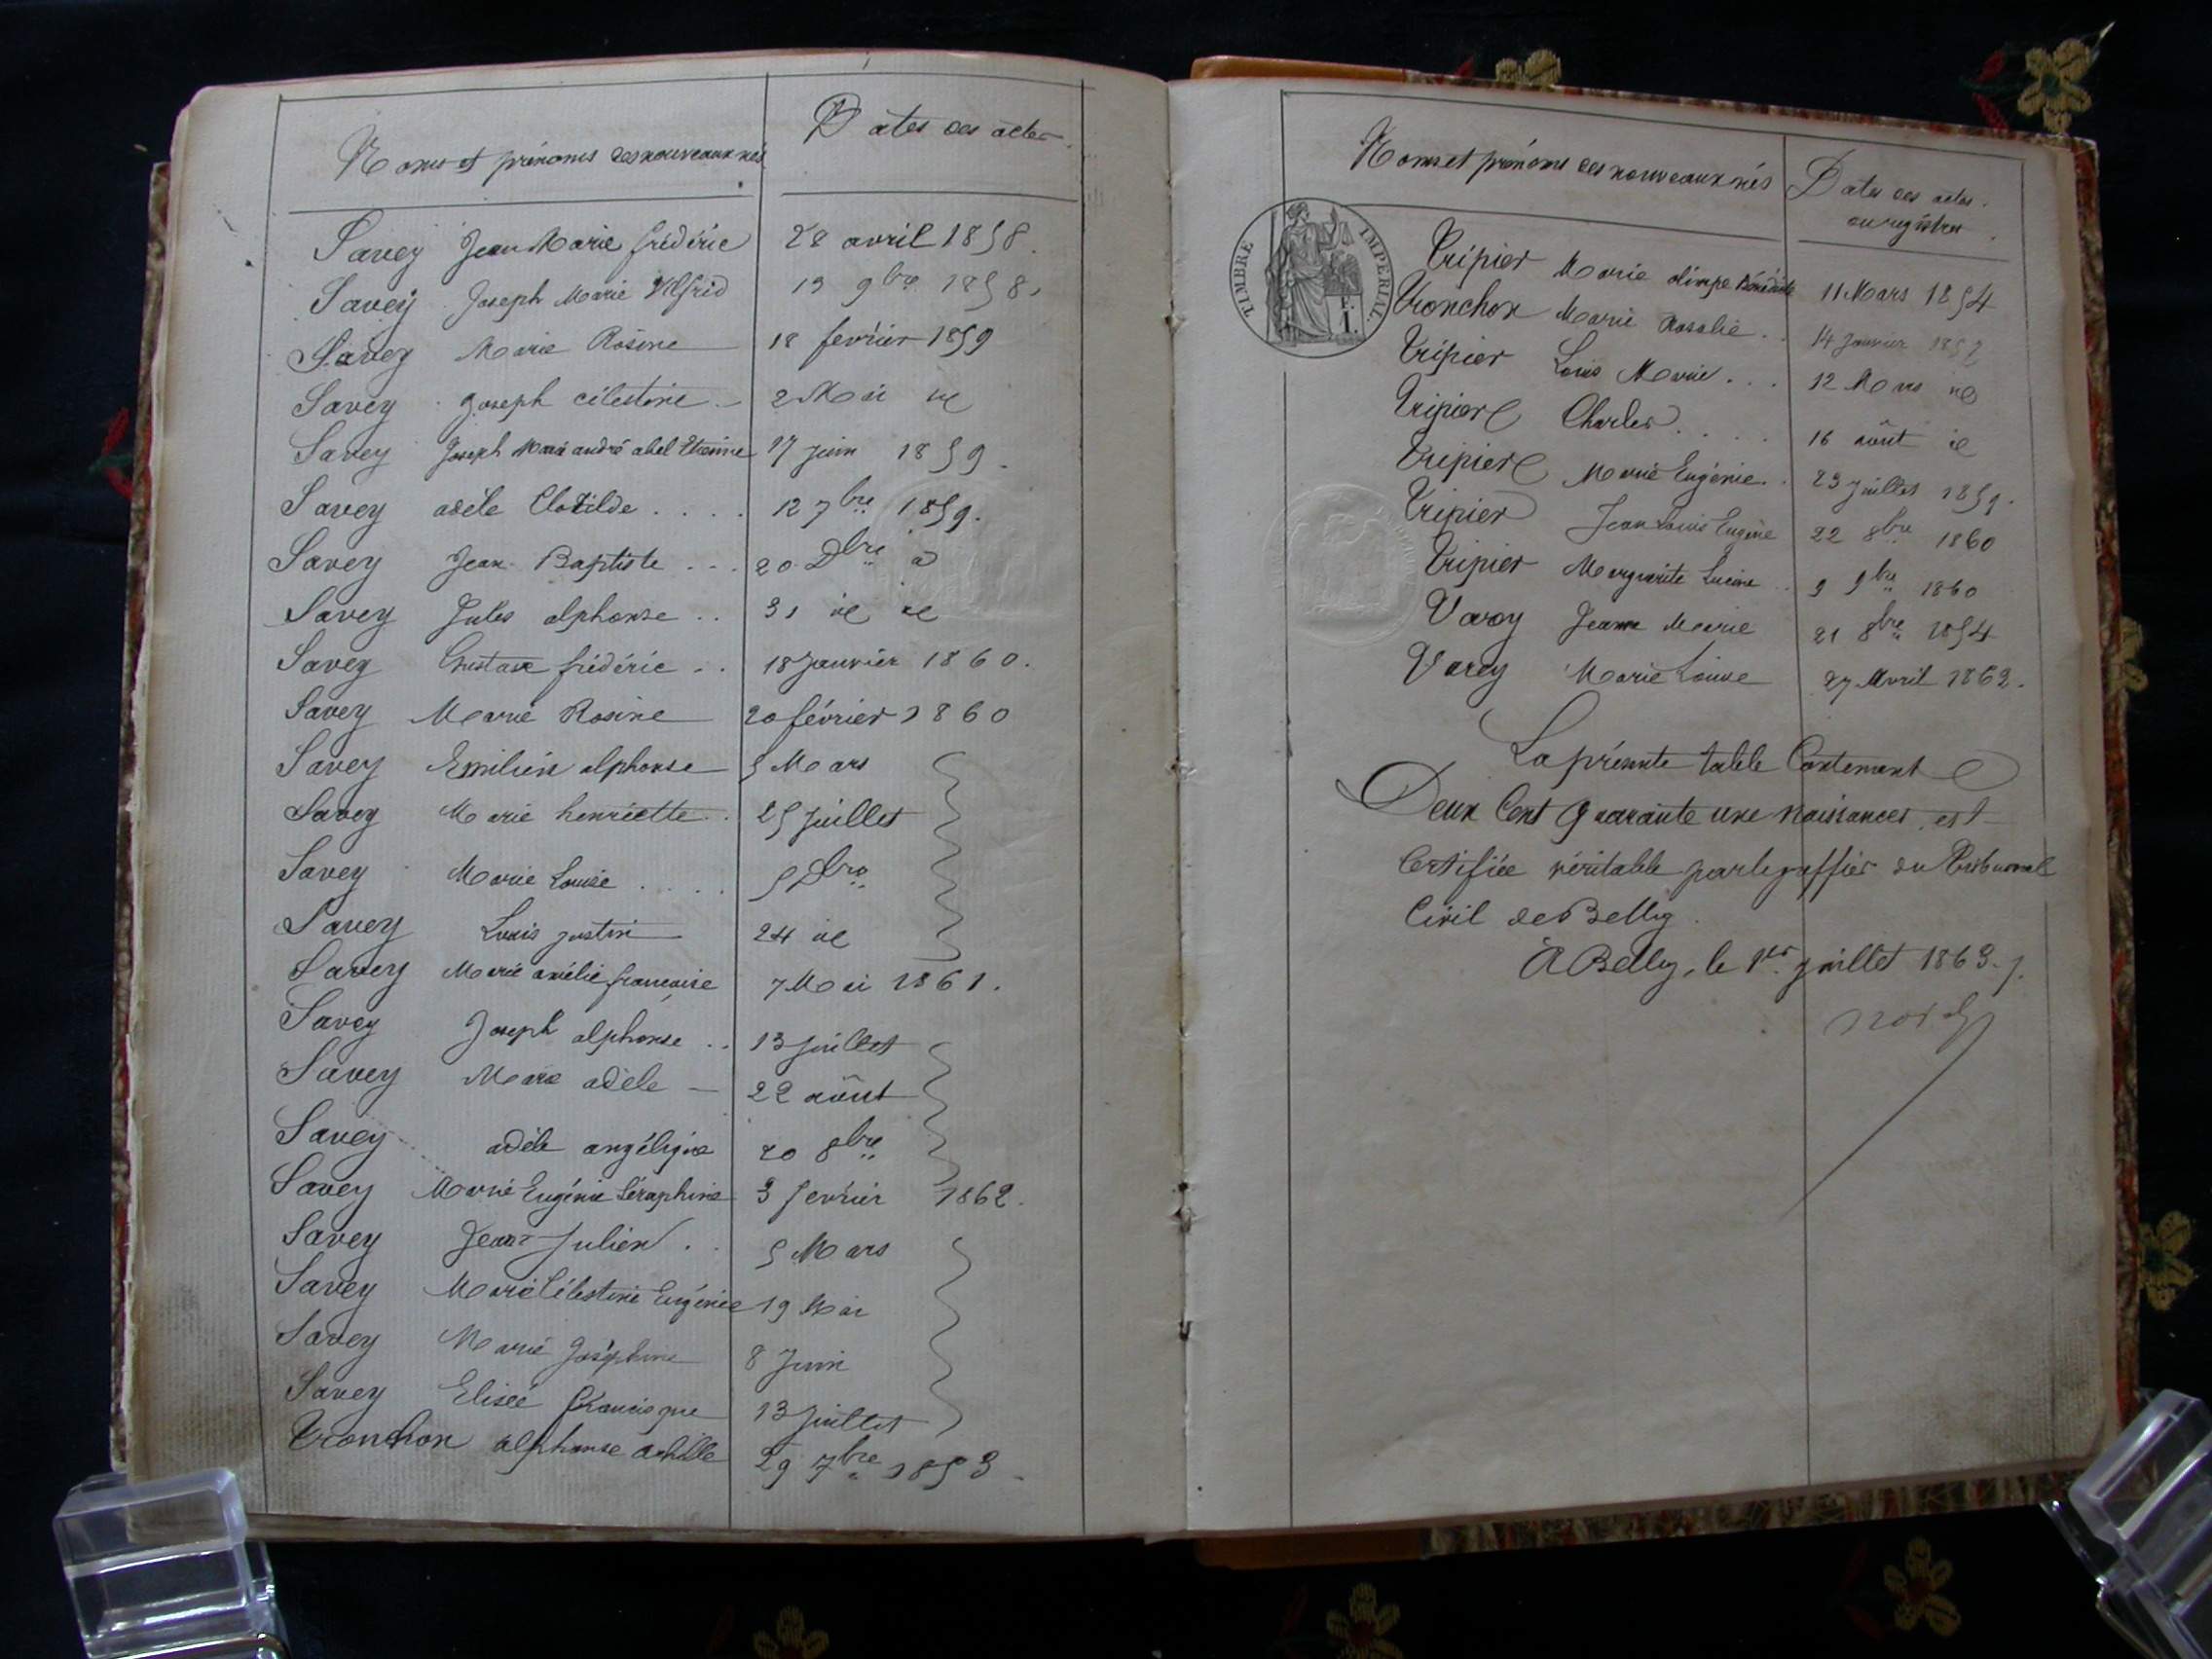 Noms et prénoms des nouveaux nés Dates des actes
Savey Jean Marie frédéric 28 avril 1858.
Savey Joseph Marie Vilfrid 13 9bre 1858.
Savey Marie Rosine 18 fevrier 1859
Savey Joseph célestin 2 Mai id
Savey Joseph Marie andré abel Etienne 17 Juin 1859.
Savey adèle Clotilde .... 12 7bre 1859.
Savey Jean Baptiste ... 20 Dbre id
Savey Jules alphonse .. 31 id id
Savey Gustave frédéric .. 18 Janvier 1860.
Savey Marie Rosine 20 février 1860
Savey Emilien alphonse 5 Mars
Savey Marie henriette .. 25 Juillet
Savey Marie Louise .... 5 Dbre
Savey Louis justin 24 id
Savey Marie amélie françoise 7 Mai 1861.
Savey Joseph alphonse .. 13 Juillet
Savey Marie adèle — 22 août
Savey adèle angélique 20 8bre
Savey Marie Eugénie Séraphine 3 fevrier 1862.
Savey Jean Julien .. 5 Mars
Savey Marie Célestine Eugénie 19 Mai
Savey Marie Joséphine 8 Juin
Savey Elisée francisque 13 Juillet
Tronchon alphonse achille 29 7bre 1853.
Noms et prénoms des nouveaux nés Dates des actes
ou registres
TIMBRE IMPERIAL.
F.
1.
Tripier Marie olimpe Bénédicte 11 Mars 1854
Tronchon Marie Rosalie .. 14 Janvier
Tripier Louis Marie ... 12 Mars id
Tripier Charles .... 16 août id
Tripier Marie Eugénie .. 23 Juillet 1859.
Tripier Jean Louis Eugène 22 8bre 1860
Tripier Marguerite Lucine .. 9 9bre 1860
Varey Jeanne Marie 21 8bre 1854
Varey Marie Louise 27 Avril 1862.
La présente table Contenant
Deux Cent quarante une naissances, est
Certifiée véritable par le greffier du Tribunal
Civil de Belley.
A Belley, le 1er juillet 1863.